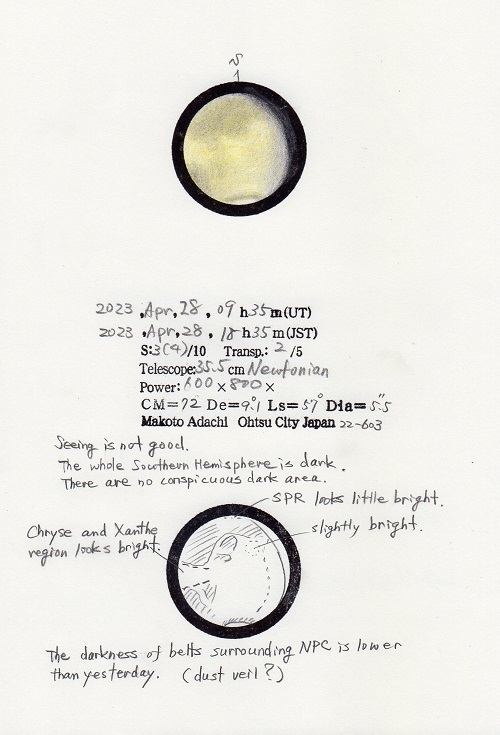 S
2023 ,Apr, 28 , 09 h 35 m (UT)
2023 ,Apr, 28 , 18 h 35 m (JST)
S:3(4)/10 Transp.: 2 /5
Telescope:35.5 cm Newtonian
Power: 600 × 800 ×
CM=72 De=9.°1 Ls=57° Dia=5."5
Makoto Adachi Ohtsu City Japan 22-603
Seeing is not good.
The whole Southern Hemisphere is dark.
There are no conspicuous dark area.
SPR looks little bright.
slightly bright.
Chryse and Xanthe
region looks bright.
The darkness of belts surrounding NPC is lower
than yesterday. (dust veil?)